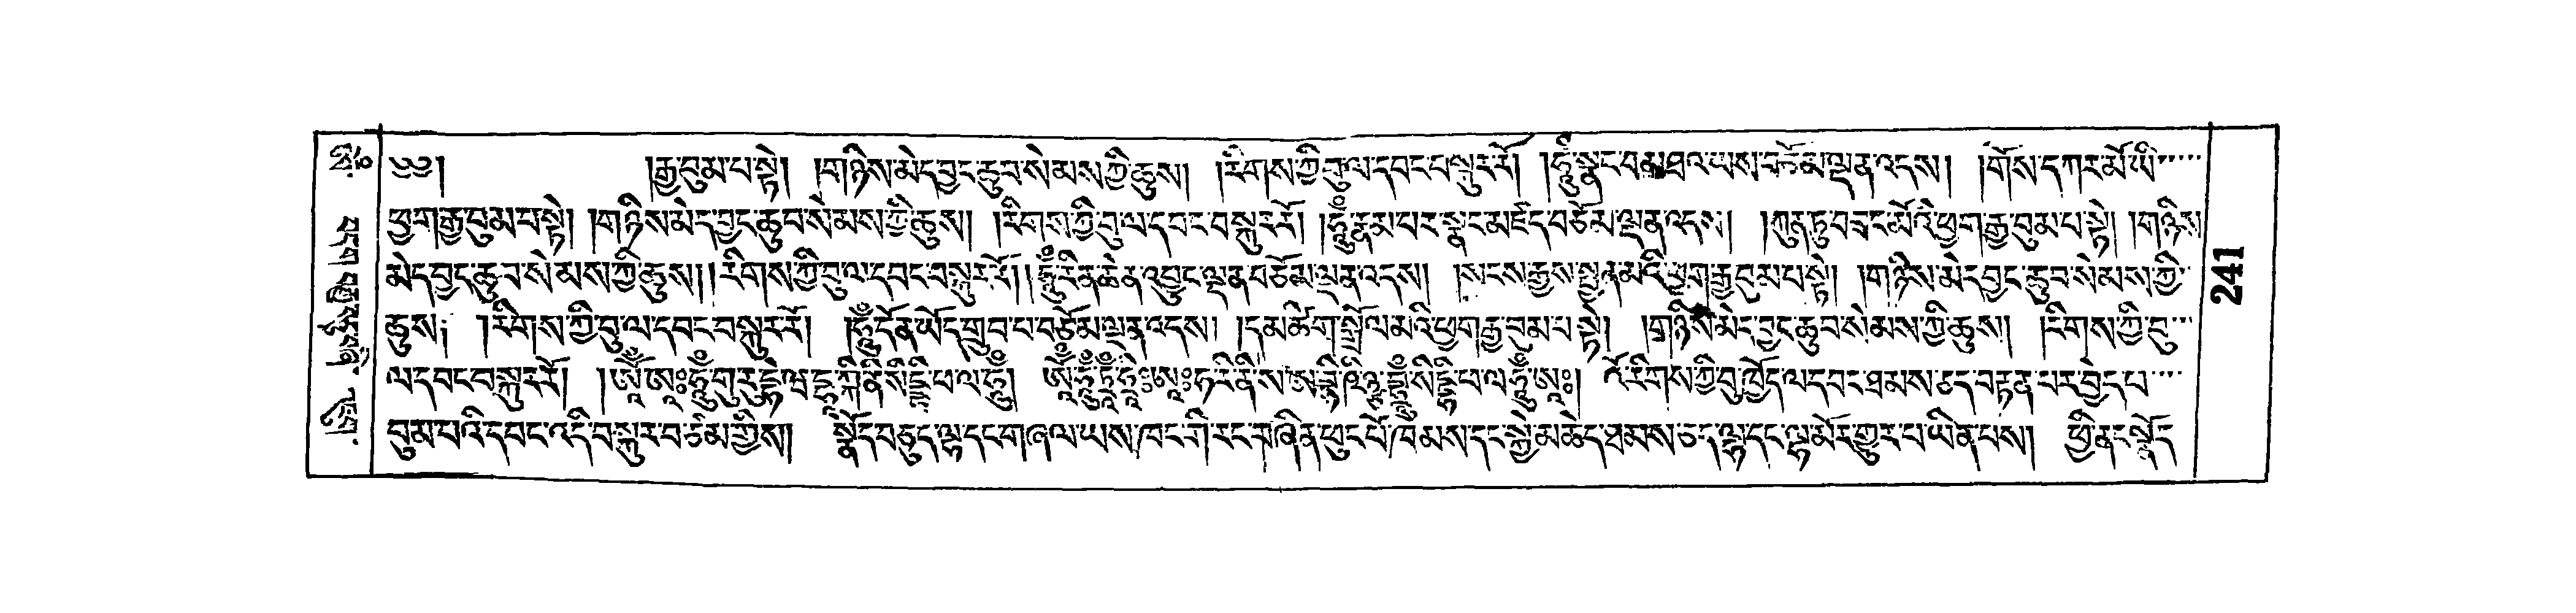 ༄༅། །རྒྱ་བུམ་པ་སྟེ། །གཉིས་མེད་བྱང་ཆུབ་སེམས་ཀྱི་ཆུས། །རིགས་ཀྱི་བུ་ལ་དབང་བསྐུར་རོ། །ཧཱུྃ་སྣང་བ་མཐའ་ཡས་བཅོམ་ལྡན་འདས། །གོས་དཀར་མོ་ཡི་
ཕྱག་རྒྱ་བུམ་པ་སྟེ། །གཉིས་མེད་བྱང་ཆུབ་སེམས་ཀྱི་ཆུས། །རིགས་ཀྱི་བུ་ལ་དབང་བསྐུར་རོ། །ཧཱུྃ་རྣམ་པར་སྣང་མཛད་བཅོམ་ལྡན་འདས། །ཀུན་ཏུ་བཟང་མོའི་ཕྱག་རྒྱ་བུམ་པ་སྟེ། །གཉིས་
མེད་བྱང་ཆུབ་སེམས་ཀྱི་ཆུས། །རིགས་ཀྱི་བུ་ལ་དབང་བསྐུར་རོ། །ཧཱུྃ་རིན་ཆེན་འབྱུང་ལྡན་བཅོམ་ལྡན་འདས། །སངས་རྒྱས་སྤྱན་མའི་ཕྱག་རྒྱ་བུམ་པ་སྟེ། །གཉིས་མེད་བྱང་ཆུབ་སེམས་ཀྱི་
ཆུས། །རིགས་ཀྱི་བུ་ལ་དབང་བསྐུར་རོ། །ཧཱུྃ་དོན་ཡོད་གྲུབ་པ་བཅོམ་ལྡན་འདས། །དམ་ཚིག་སྒྲོལ་མའི་ཕྱག་རྒྱ་བུམ་པ་སྟེ། །གཉིས་མེད་བྱང་ཆུབ་སེམས་ཀྱི་ཆུས། །རིགས་ཀྱི་བུ་
ལ་དབང་བསྐུར་རོ། །ཨོཾ་ཨཱཿཧཱུྃ་གུ་རུ་ སིདྡྷི་ཕ་ལ་ཧཱུྃ། ཨོཾ་ ཧ་རི་ནི་ས་ སིདྡྷི་ཕ་ལ་ཧཱུྃ་ཨཱཿ། འོ་རིགས་ཀྱི་བུ་ཁྱོད་ལ་དབང་ཐམས་ཅད་བརྟན་པར་བྱེད་པ་
བུམ་པའི་དབང་འདི་བསྐུར་བཙམ་གྱིས། སྣོད་བཅུད་ལྷ་དང་གཞལ་ཡས་ཁང་གི་རང་བཞིན་ཕུང་པོ་ཁམས་དང་སྐྱེ་མཆེད་ཐམས་ཅད་ལྷ་དང་ལྷ་མོར་གྱུར་པ་ཡིན་པས། ཕྱི་ནང་སྣོད་
241